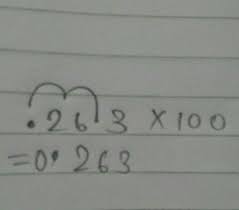 .263 x 100
=0.263